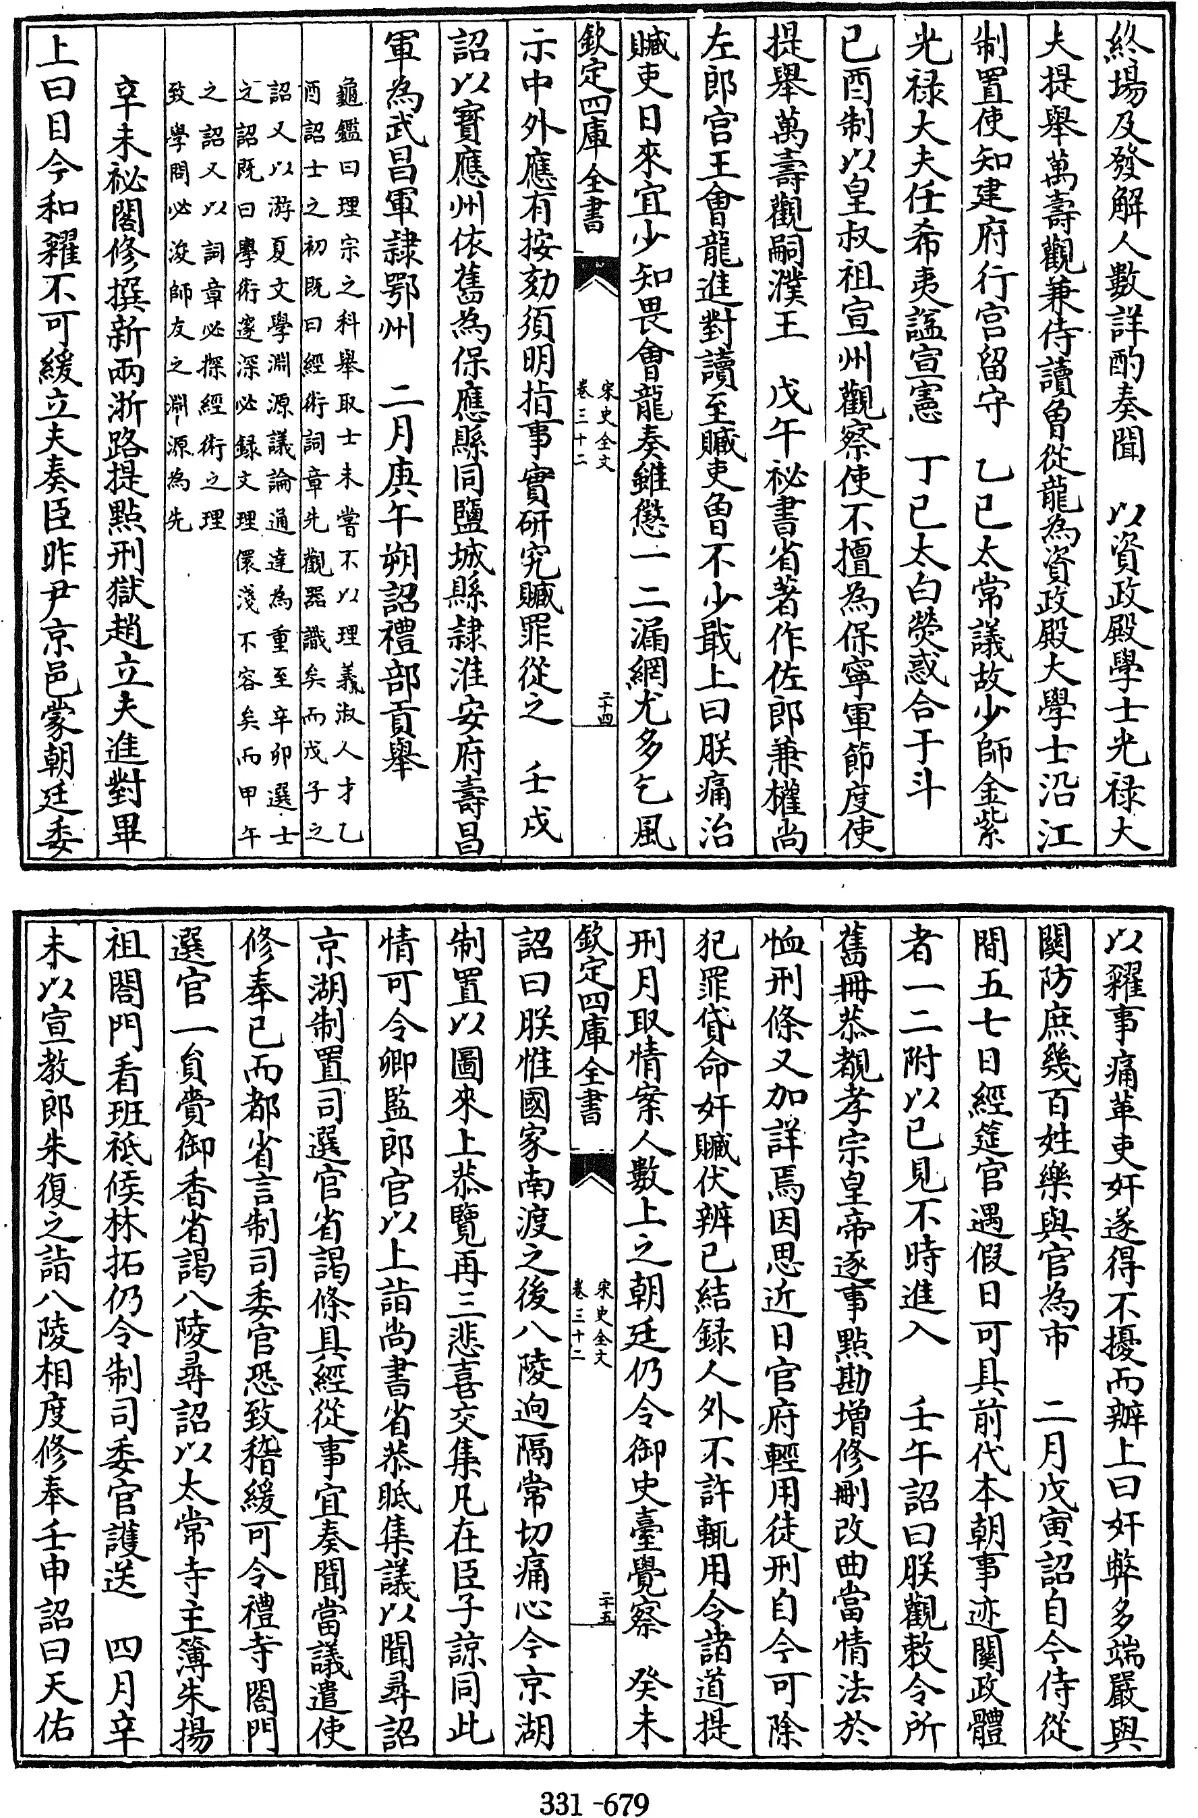 終場及發解人數詳酌奏聞　以資政殿學士光禄大
夫提舉萬壽觀兼侍讀魯從龍為資政殿大學士沿江
制置使知建府行宫留守　乙巳太常議故少師金紫
光禄大夫任希夷諡宣憲　丁巳太白熒惑合于斗
己酉制以皇叔祖宣州觀察使不擅為保寧軍節度使
提舉萬壽觀嗣濮王　戊午祕書省著作佐郎兼權尚
左郎官王會龍進對讀至贓吏曾不少戢上曰朕痛治
贓吏日來宜少知畏會龍奏雖懲一二漏網尤多乞風
欽定四庫全書
宋史全文
卷三十二
二十四
示中外應有按劾須明指事實研究贓罪從之　壬戌
詔以寳應州依舊為保應縣同鹽城縣隷淮安府壽昌
軍為武昌軍隷鄂州　二月庚午朔詔禮部貢舉
龜鑑曰理宗之科舉取士未嘗不以理義淑人才乙
酉詔士之初既曰經術詞章先觀器識矣而戊子之
詔又以游夏文學淵源議論通達為重至辛卯選士
之詔既曰學術邃深必録文理儇淺不容矣而甲午
之詔又以詞章必探經術之理
致學問必浚師友之淵源為先
辛未祕閣修撰新兩浙路提㸃刑獄趙立夫進對畢
上曰目今和糴不可緩立夫奏臣昨尹京邑蒙朝廷委
以糴事痛革吏奸遂得不擾而辦上曰奸弊多端嚴與
關防庶幾百姓樂與官為市　二月戊寅詔自今侍從
間五七日經筵官遇假日可具前代本朝事迹關政體
者一二附以己見不時進入　壬午詔曰朕觀敕令所
舊冊恭覩孝宗皇帝逐事㸃勘增修刪改曲當情法於
恤刑條又加詳焉因思近日官府輕用徒刑自今可除
犯罪貸命奸贓伏辨已結録人外不許輒用令諸道提
刑月取情案人數上之朝廷仍令御史臺覺察　癸未
欽定四庫全書
宋史全文
卷三十二
二十五
詔曰朕惟國家南渡之後八陵逈隔常切痛心今京湖
制置以圖來上恭覽再三悲喜交集凡在臣子諒同此
情可令卿監郎官以上詣尚書省恭眡集議以聞尋詔
京湖制置司選官省謁條具經從事宜奏聞當議遣使
修奉已而都省言制司委官恐致稽緩可令禮寺閤門
選官一員賫御香省謁八陵尋詔以太常寺主簿朱揚
祖閤門看班祗候林拓仍令制司委官護送　四月辛
未以宣教郎朱復之詣八陵相度修奉壬申詔曰天佑
331-679